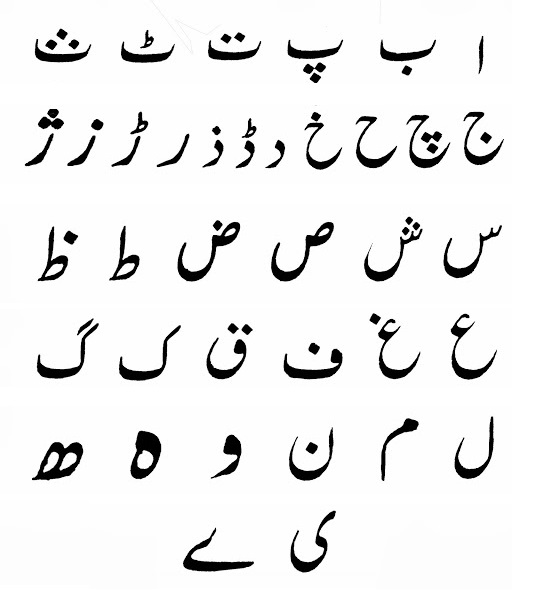 ا ب پ ت ٹ ث
ج چ ح خ د ڈ ذ ر ڑ ز ژ
س ش ص ض ط ظ
ع غ ف ق ک گ
ل م ن و ہ ھ
ی ے